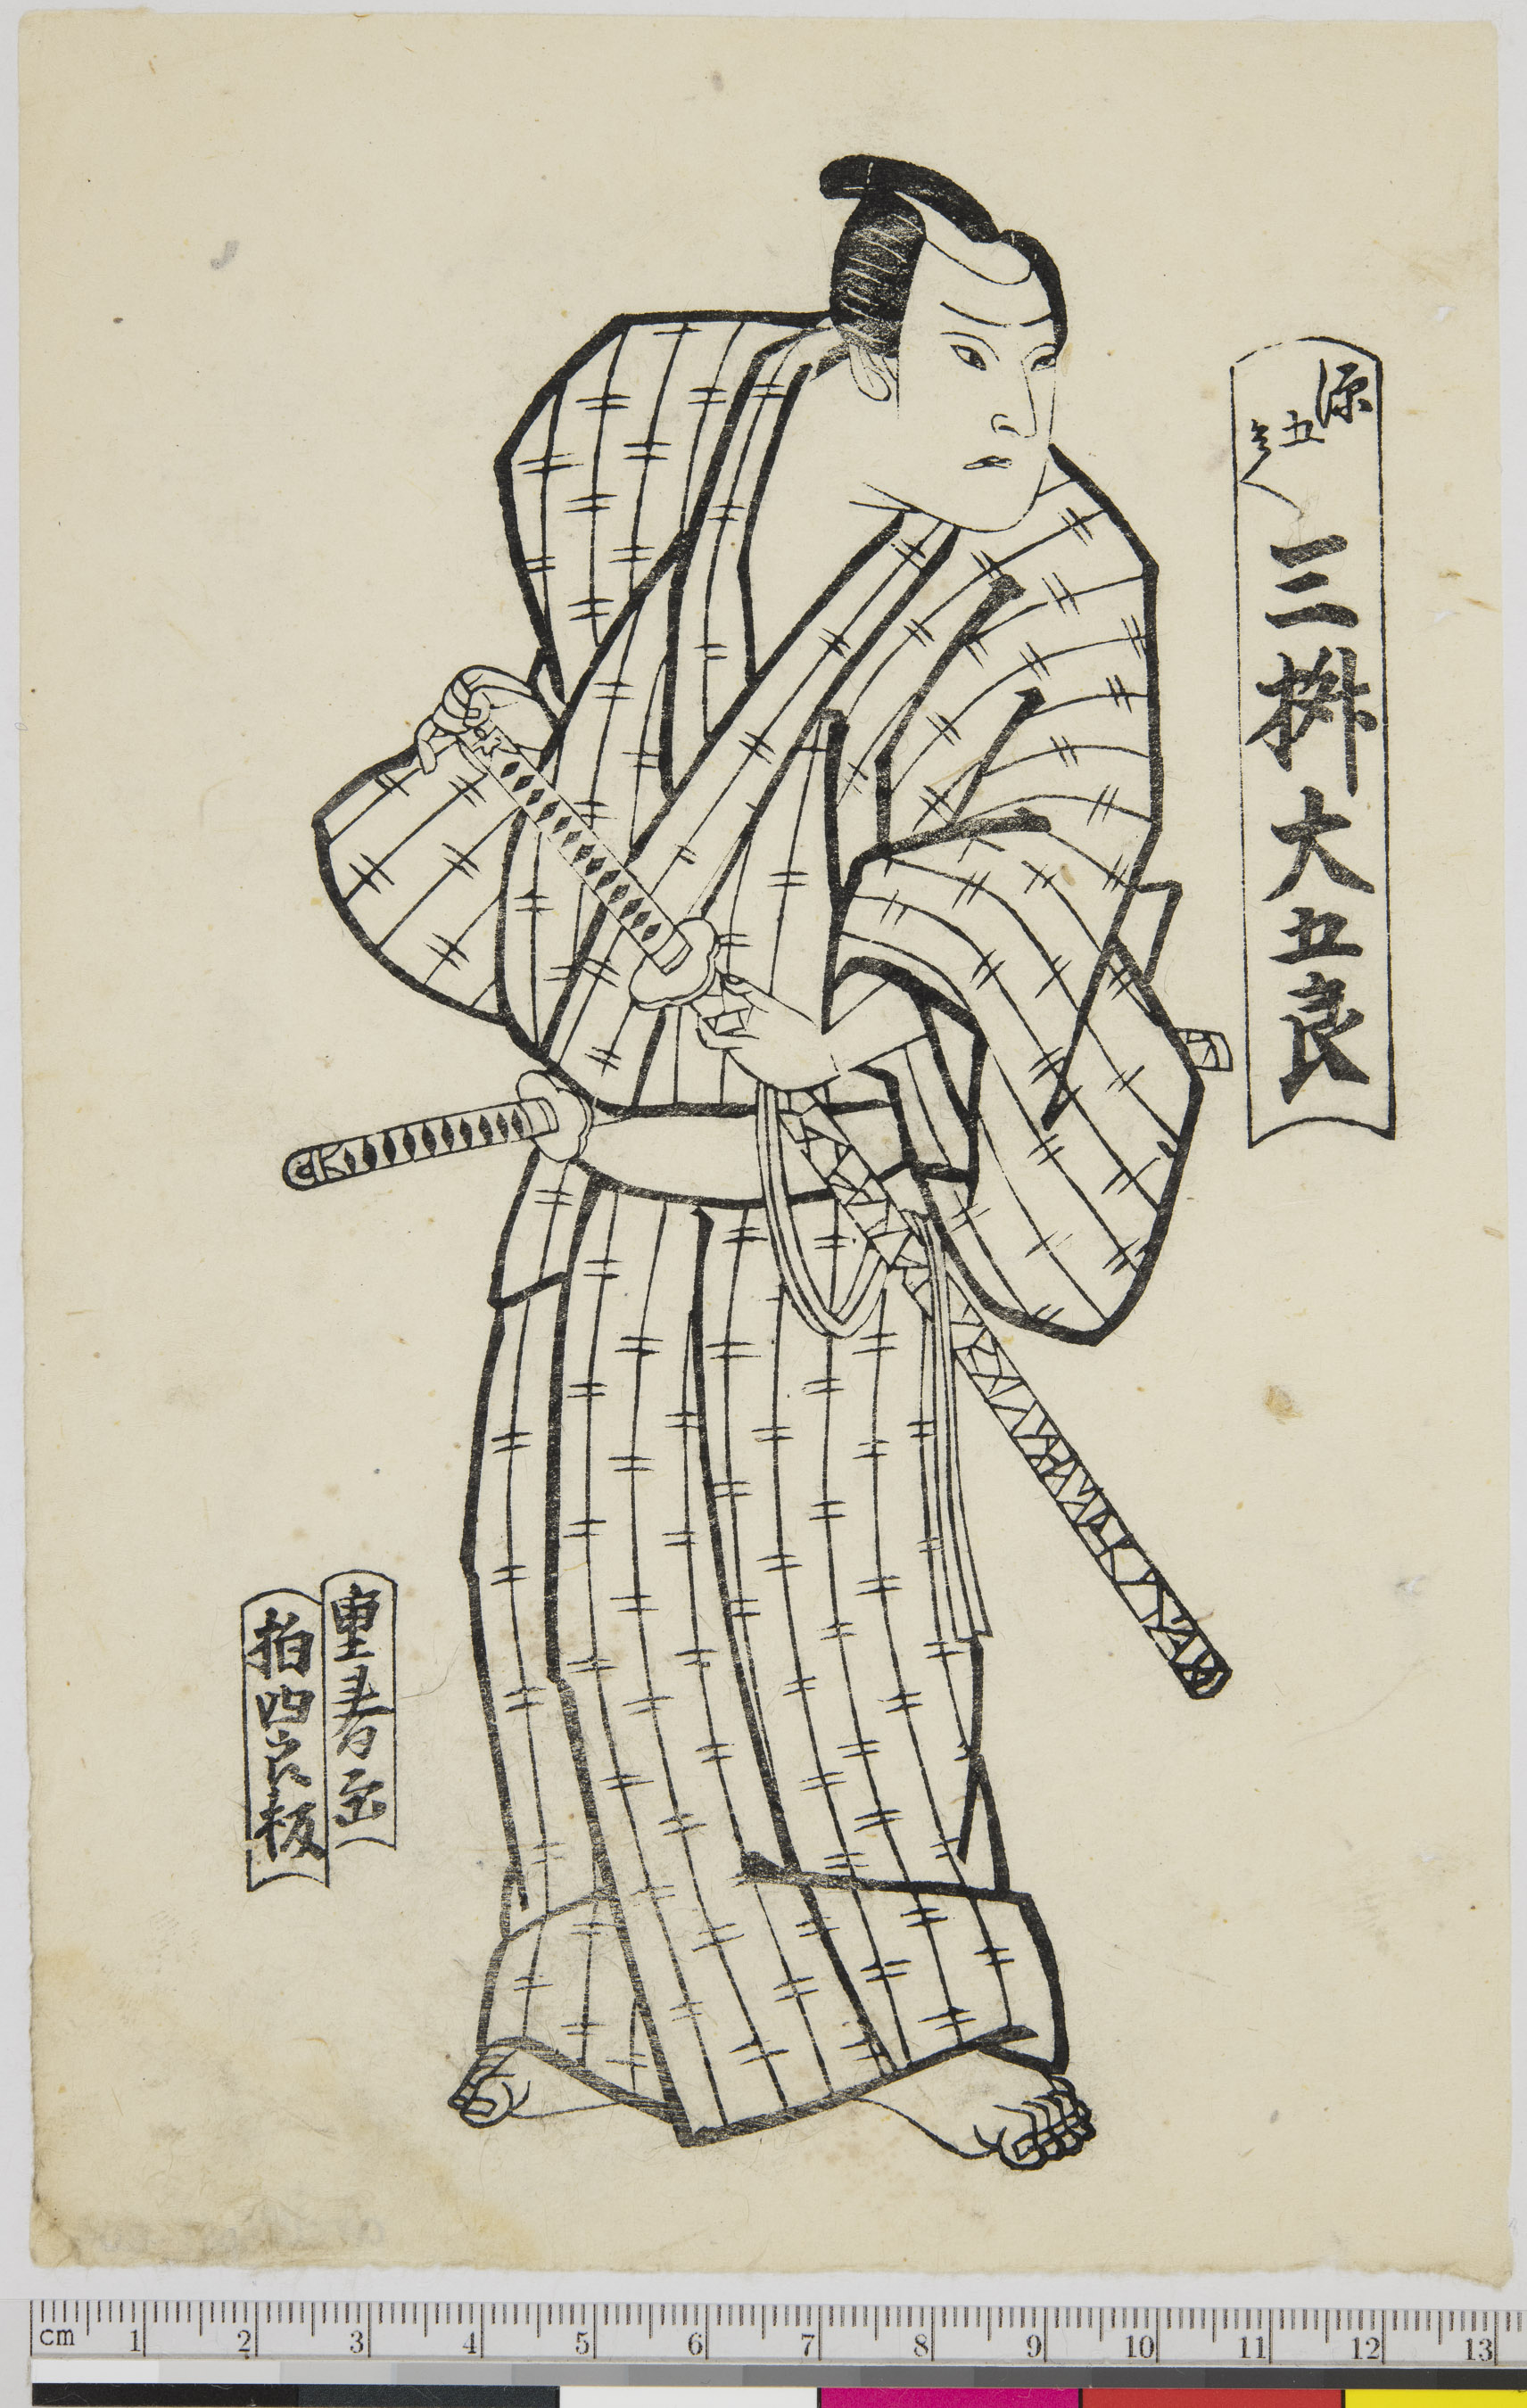 源
五
三桝大五良
重春画
拍四良板
cm 1 2 3 4 5 6 7 8 9 10 11 12 13